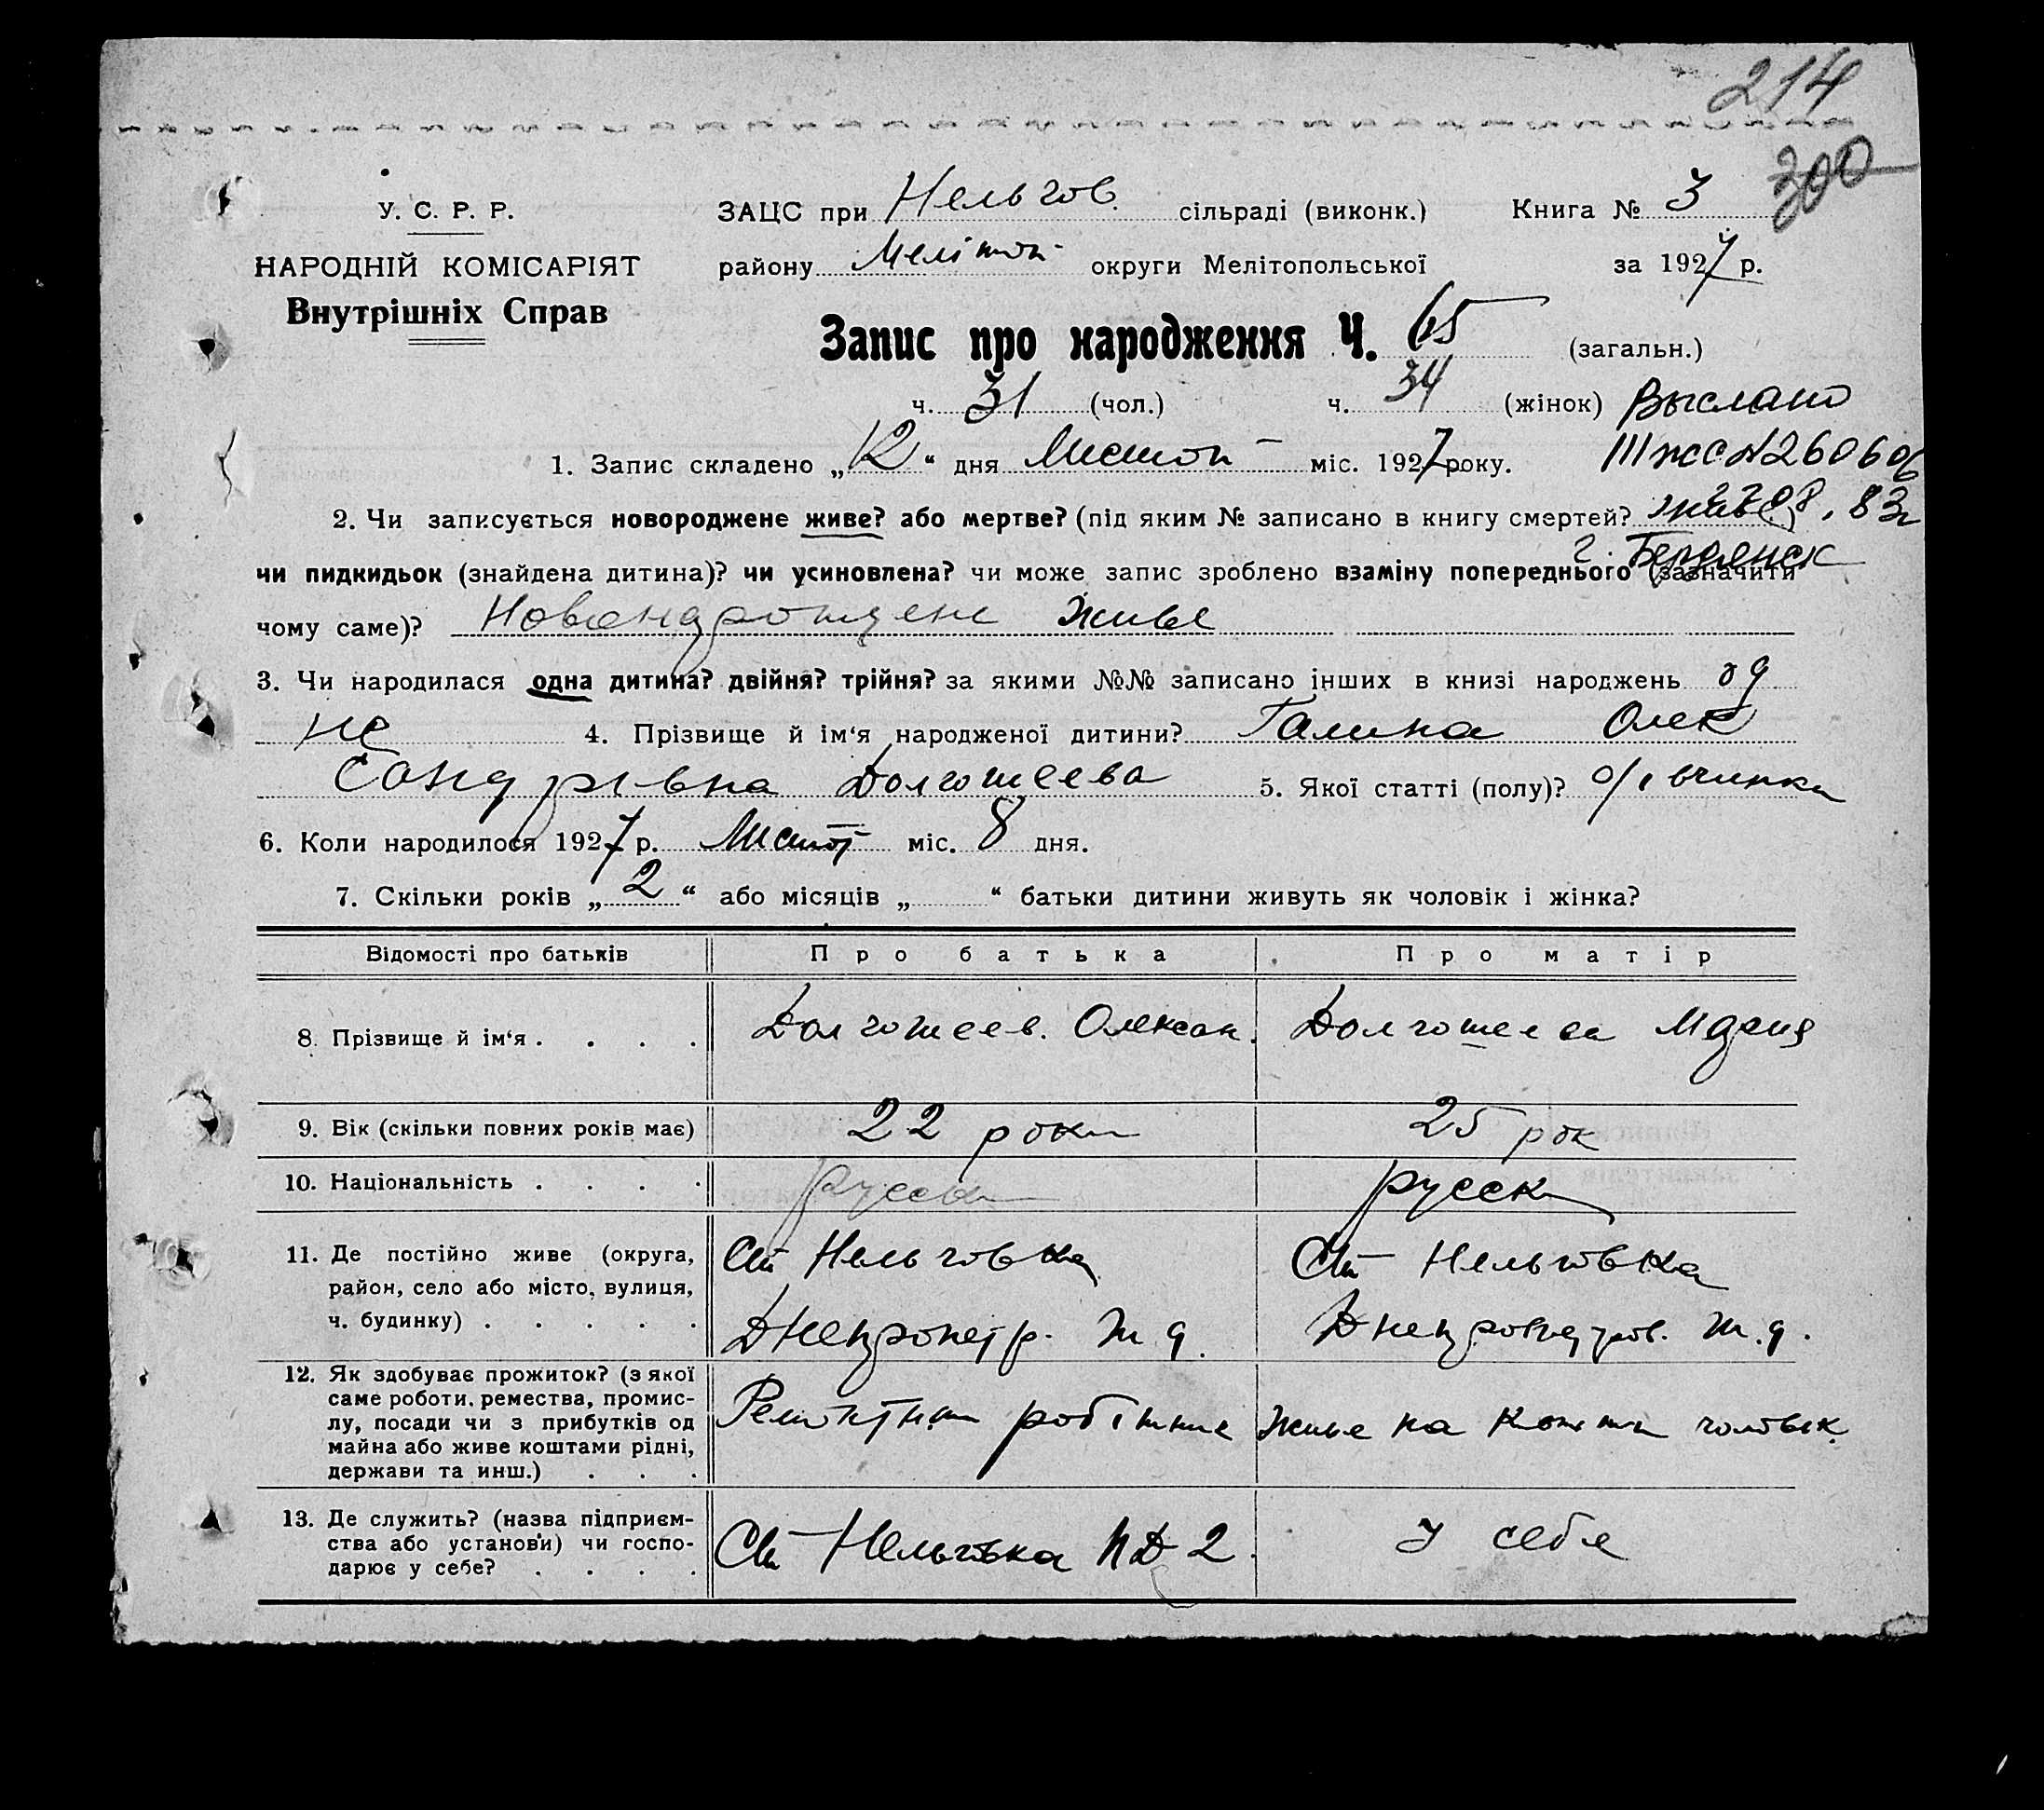 214
300
У. С. Р. Р.
НАРОДНІЙ КОМІСАРІЯТ
Внутрішніх Справ
ЗАЦС при Нельгов. сільраді (виконк.) Книга № 3
району Мелітоп округи Мелітопольської за 1927 р.
Запис про народження Ч. 65 (загальн.)
ч. 31 (чол.) ч. 34 (жінок) Выслано
1. Запис складено „12“ дня Листоп міс. 1927 року. III жс № 260606
2. Чи записується новороджене живе? або мертве? (під яким № записано в книгу смертей? живе
08.83г
г. Бердянск
чи пидкидьок (знайдена дитина)? чи усиновлена? чи може запис зроблено взаміну попереднього (зазначити
чому саме)? живе
3. Чи народилася одна дитина? двійня? трійня? за якими №№ записано інших в книзі народжень од
не 4. Прізвище й ім‘я народженої дитини? Галина Олек
сандрівна Долгошеева 5. Якої статті (полу)? дівчинка
6. Коли народилося 1927 р. Листоп міс. 8 дня.
7. Скільки років „2“ або місяців „ “ батьки дитини живуть як чоловік і жінка?
Відомості про батьків Про батька Про матір
8. Прізвище й ім‘я . . . . Долгошеев. Олексан. Долгошеева Мария
9. Вік (скільки повних років має) 22 роки 25 рок
10. Національність . . . . русск русск
11. Де постійно живе (округа,
район, село або місто, вулиця,
ч. будинку) . . . . .
Ст Нельговка
Днепропетр. ж д.
Ст Нельговка
Днепропетров. ж.д.
12. Як здобуває прожиток? (з якої
саме роботи, ремества, промис-
лу, посади чи з прибутків од
майна або живе коштами рідні,
держави та инш.) . . .
Ремонтн робітник
живе на кошти чоловік.
13. Де служить? (назва підприєм-
ства або установи) чи госпо-
дарює у себе? . . . .
Ст Нельговка ПД 2.
У себе